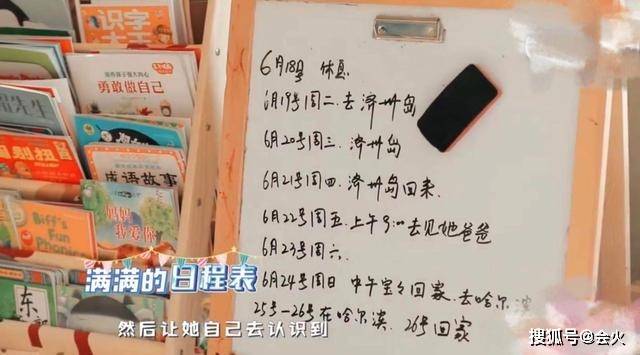 识字
大王
培养孩子强大内心
勇敢做自己
先生
别扭
成语故事
妈妈
我爱你
Biff's
Fun
Phonics
东
6月18号 休息
6月19号周二.去济州岛
6月20号周三.济州岛
6月21号周四.济州岛回来.
6月22号周五.上午9:00去见她爸爸
6月23号周六.
6月24号周日 中午宝々回家.去哈尔滨
25号-26号在哈尔滨.26号回家
满满的日程表
然后让她自己去认识到
搜狐号@会火